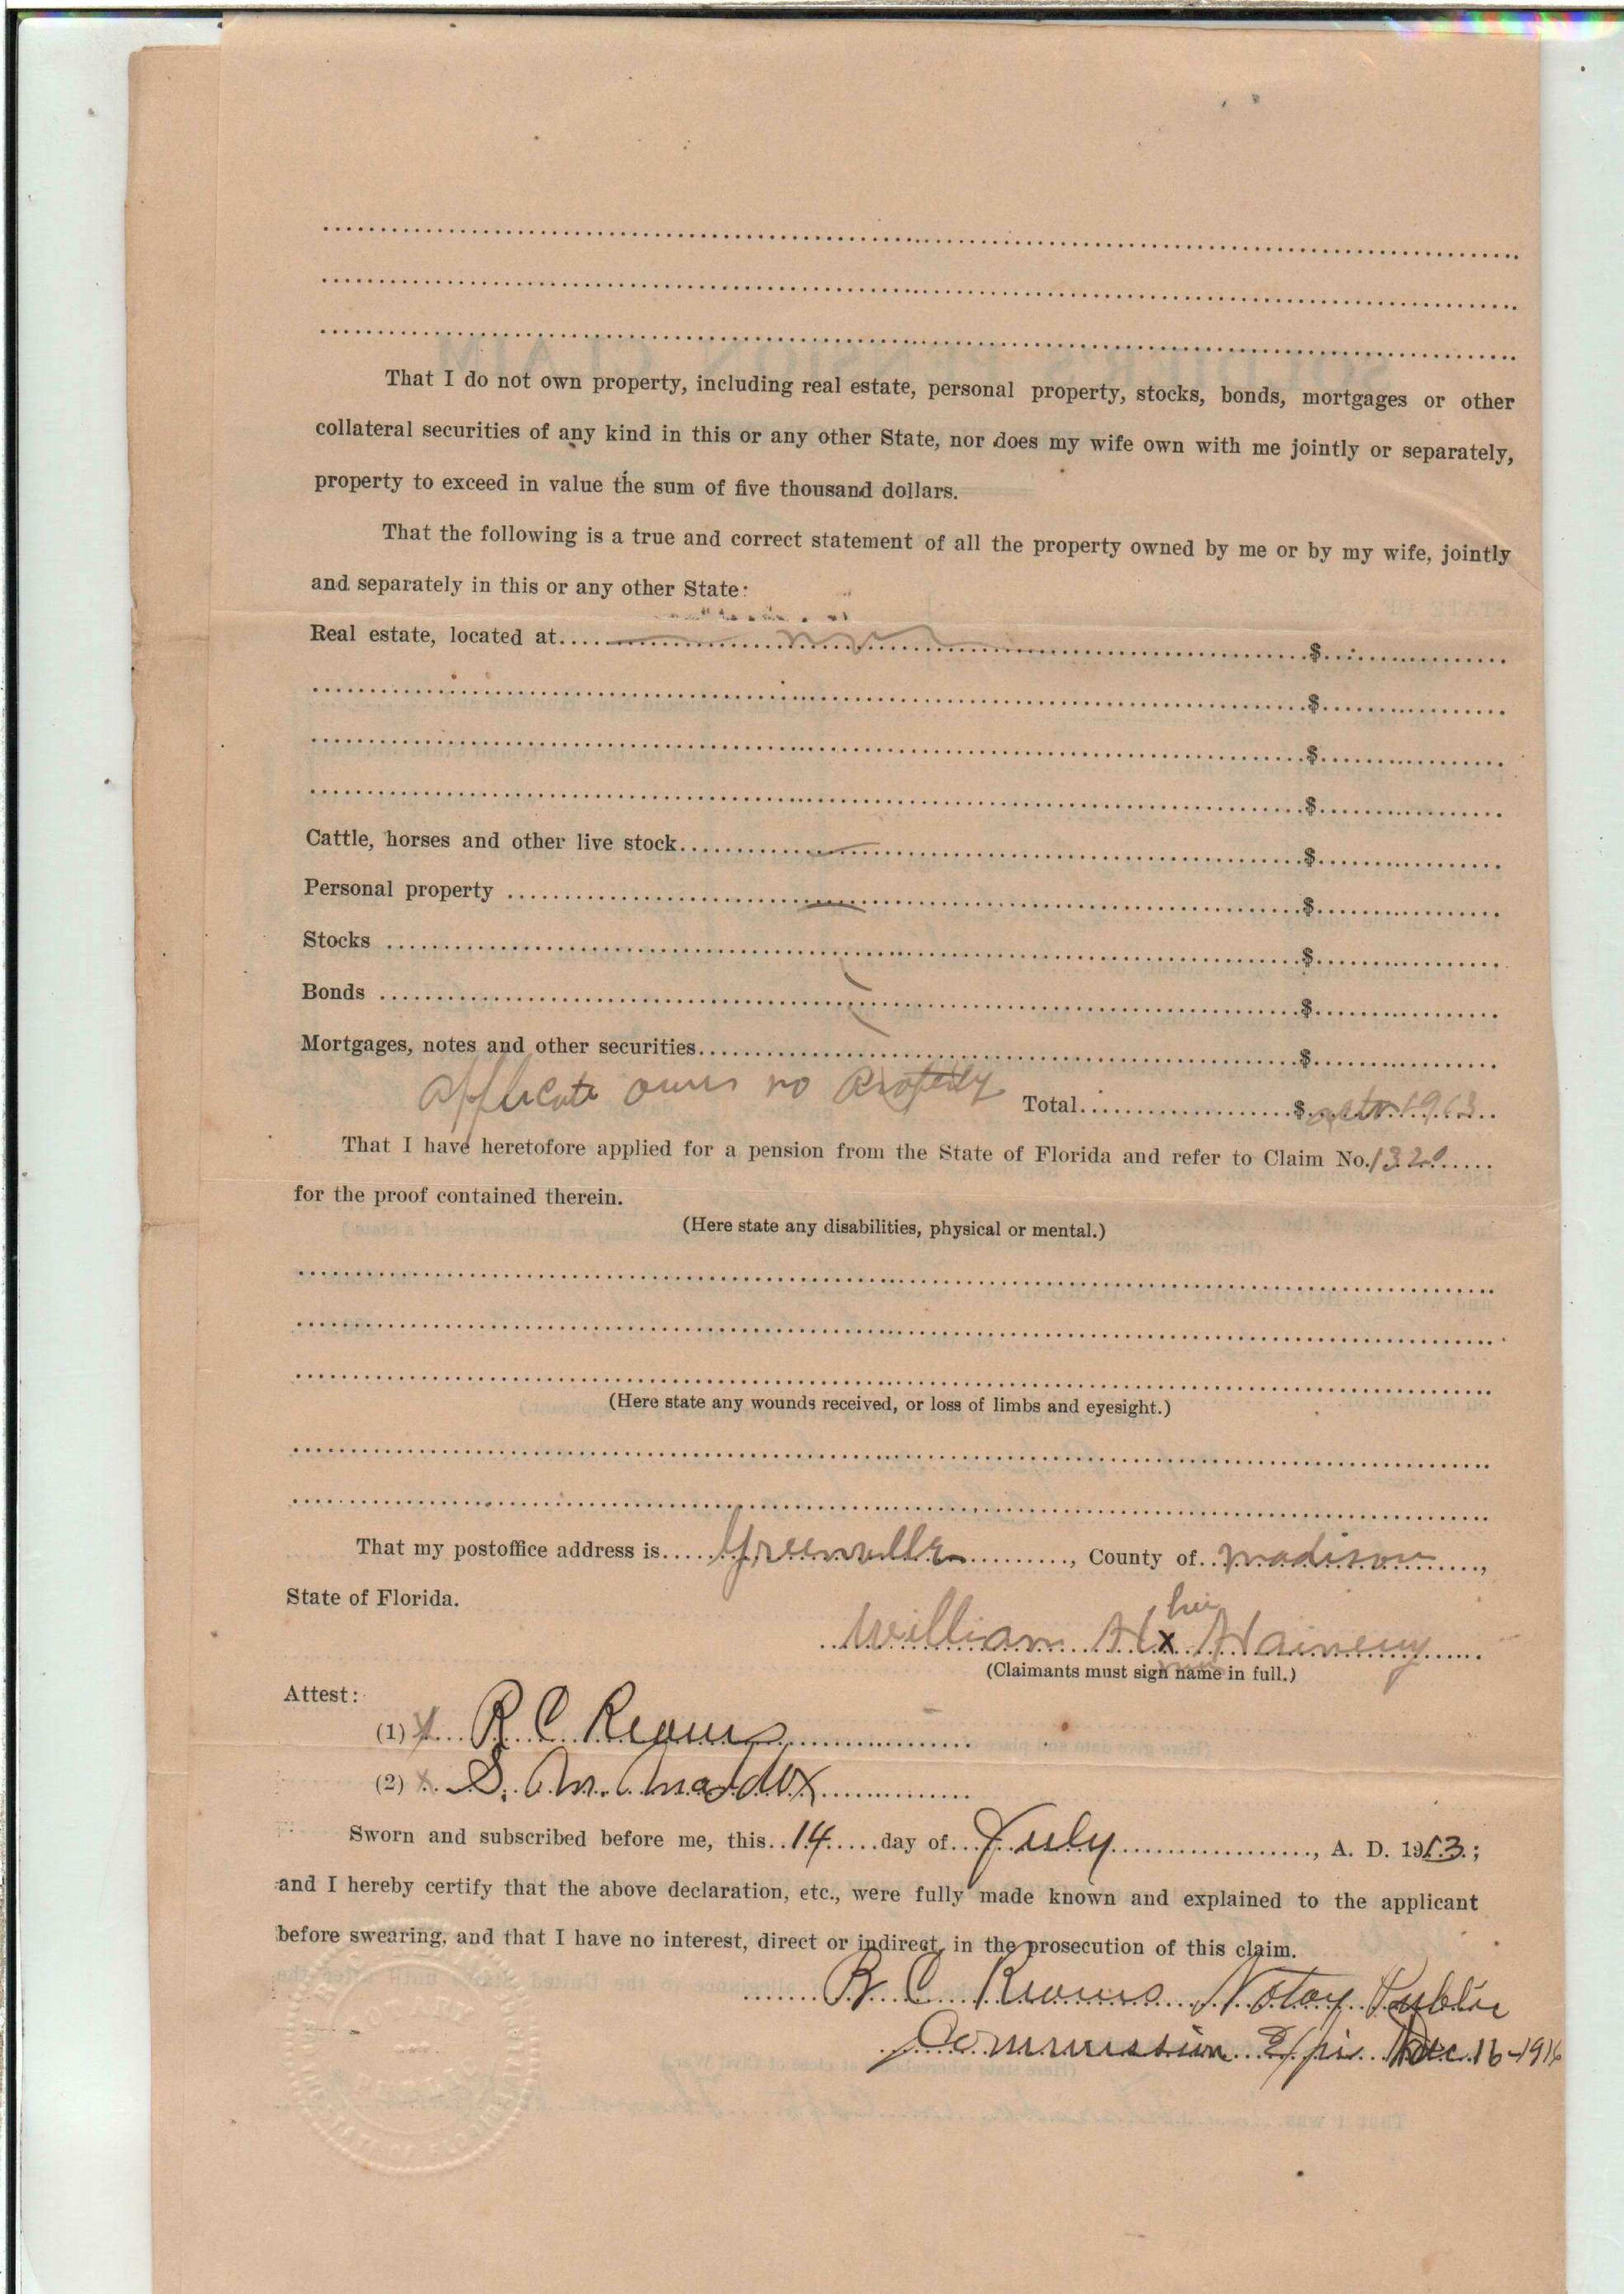 That I do not own property, including real estate, personal property, stocks, bonds, mortgages or other
collateral securities of any kind in this or any other State, nor does my wife own with me jointly or separately,
property to exceed in value the sum of five thousand dollars.
That the following is a true and correct statement of all the property owned by me or by my wife, jointly
and separately in this or any other State:
Real estate, located at $
$
$
$
Cattle, horses and other live stock $
Personal property $
Stocks $
Bonds $
Mortgages, notes and other securities $
owns no Property
Total $
That I have heretofore applied for a pension from the State of Florida and refer to Claim No. 1320
for the proof contained therein.
(Here state any disabilities, physical or mental.)
(Here state any wounds received, or loss of limbs and eyesight.)
That my postoffice address is Greenville, County of Madison,
State of Florida.
his
William H x Hainey
(Claimants must sign name in full.)
Attest:
(1) x R C Reams
(2) x S. M. Maddox
Sworn and subscribed before me, this 14 day of July, A. D. 1913;
and I hereby certify that the above declaration, etc., were fully made known and explained to the applicant
before swearing, and that I have no interest, direct or indirect, in the prosecution of this claim.
R C Reams Notay Public
Commission Dec 16-1916